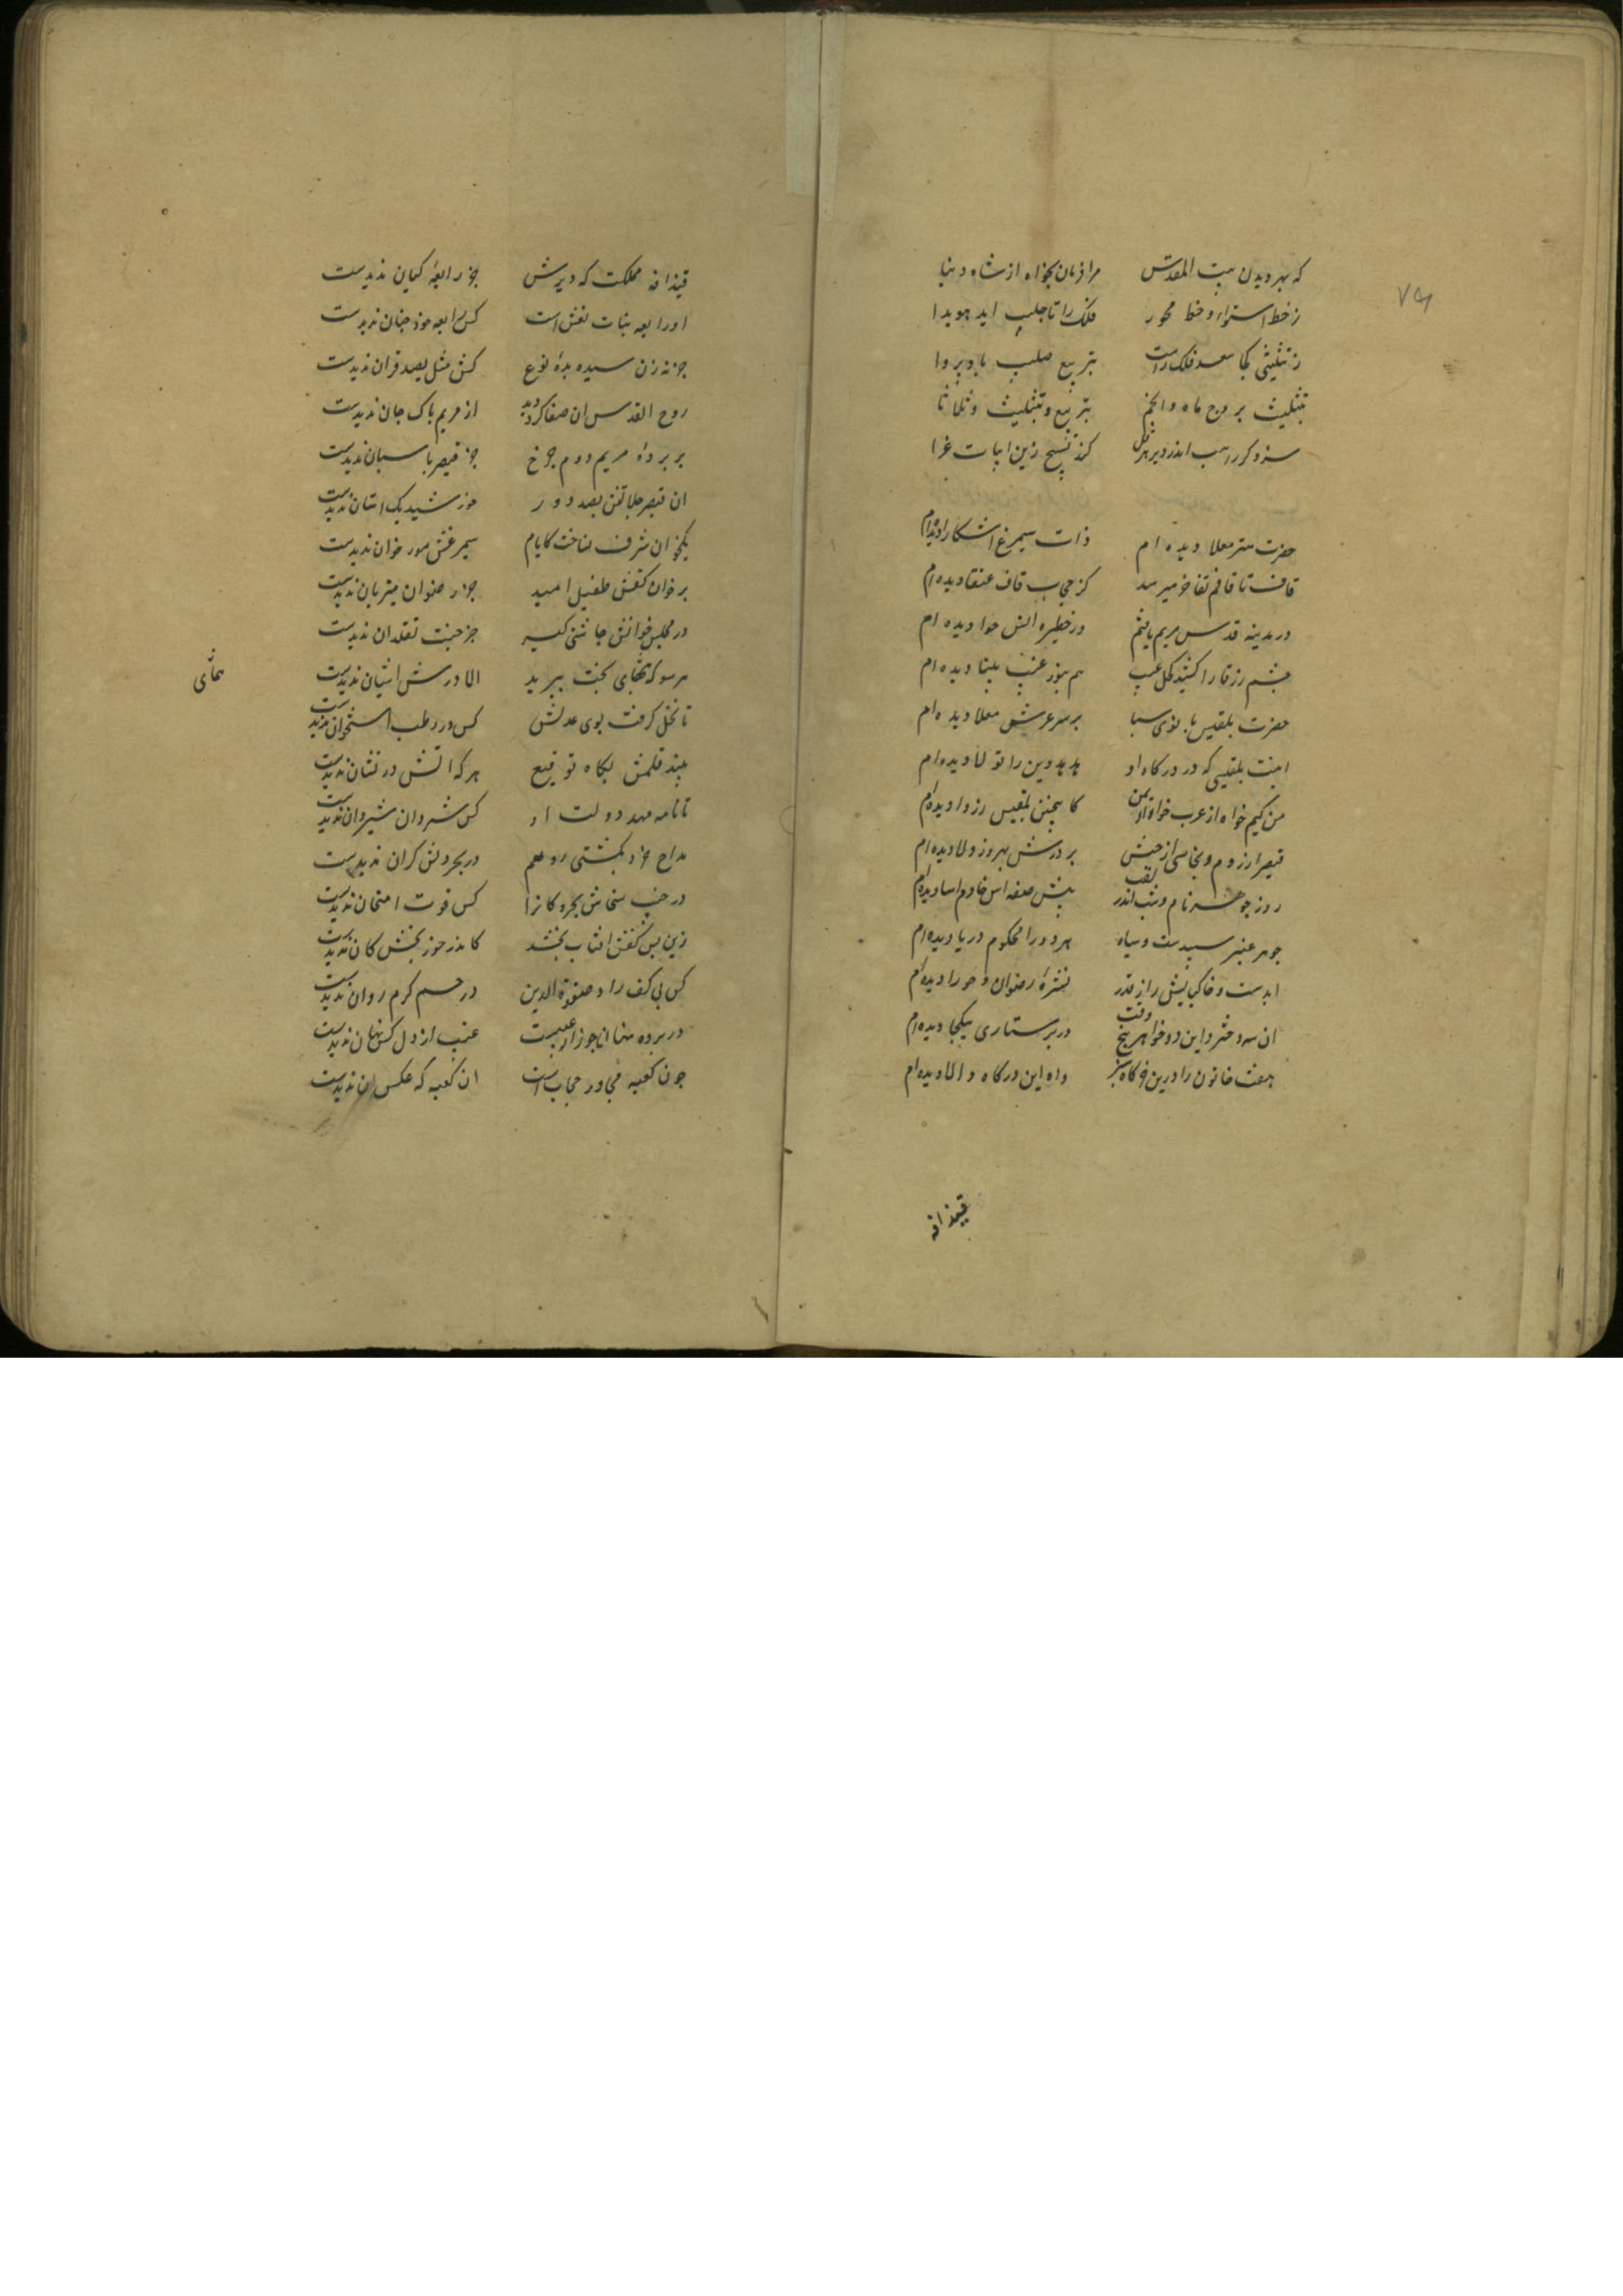 که بهر دیدن بیت المقدس مرا فرمان بخواه از شاه دنیا
ز خط استواء و خط محور فلک را تا جلیب اید هویدا
ز تثلیثی کجا سعد فلک راست بتربیع صلیب باد پروا
بتثلیث بروج ماه و انجم بتربیع و تثلیث و ثلاثا
سزد کر راهب اندر دیر هرقل کند تسبیح زین ابیات غرا
حضرت ستر معلا دیده ام ذات سیمرغ اشکارا دیده ام
قاف تا قافم تفاخر میرسد کز حجب قاف عنقا دیده ام
در مدینه قدس مریم یافتم در حظیره انس حوا دیده ام
چشم زرقا را کشیده کحل غیب هم بنور غیب بینا دیده ام
حضرت بلقیس بانوی سبا بر سر عرش معلا دیده ام
اینت بلقیسی که در درکاه او هدهد دین را تولا دیده ام
من کیم خواه از عرب خواه از یمن کاینچنین بلقیس رزوا دیده ام
قیصر از روم و نجاشی از حبش بر درش بهروز و لالا دیده ام
روز جوهر نام و شب اندر لقب پیش صفه اش خادم اسا دیده ام
جوهر عنبر سپیدست و سیاه هر دو را محکوم دریا دیده ام
ابدست و خاکپایش راز قدر نشرهٔ رضوان و حورا دیده ام
ان سه دختر و این دو خواهر پنج وقت در پرستاری یکجا دیده ام
هفت خاتون را درین خرکاه سبز داه این درکاه والا دیده ام
قیذافه
۷۴
قیذافه مملکت که دیرش جز رابعهٔ کیان ندیدست
او رابعه بنات نعش است کس رابعه خود جنان ندیدست
جز نه زن سیده بدهٔ نوع کش مثل بصد قران ندیدست
روح القدس ان صفا کزو دید از مریم پاک جان ندیدست
بر پردهٔ مریم دوم جرخ جز قیصر پاسبان ندیدست
ان قیصر جلالتش بصد دور خورشید بک استان ندیدست
یکخوان شرف نساخت کایام سیمرغش مور خوان ندیدست
بر خوان کفش طفیل امید جز رضوان میزبان ندیدست
در مجلس خوانش جاشنی کیر جز جنت نقلدان ندیدست
هر سو که همای بخت پرید الا درش اشیان ندیدست
تا نخل کرفت بوی عدلش کس در رطب استخوان ندیدست
پیند قلمش بکاه توقیع هر که اتش درفشان ندیدست
تا نامه مهد دولت او کس شروان شیروان ندیدست
مداح خرد بکشتی وهم در بحر دلش کران ندیدست
در جنب سخاش بحر و کانرا کس قوت امتحان ندیدست
زین بس کفش افتاب بخشد کاندر خور بخش کان ندیدست
کس بی کف راد صفوة الدین در جسم کرم روان ندیدست
در پرده نهان جو راز غیبست غیب از دل کس نهان ندیدست
جون کعبه مجاور حجاب است ان کعبه که عکس ان ندیدست
همای